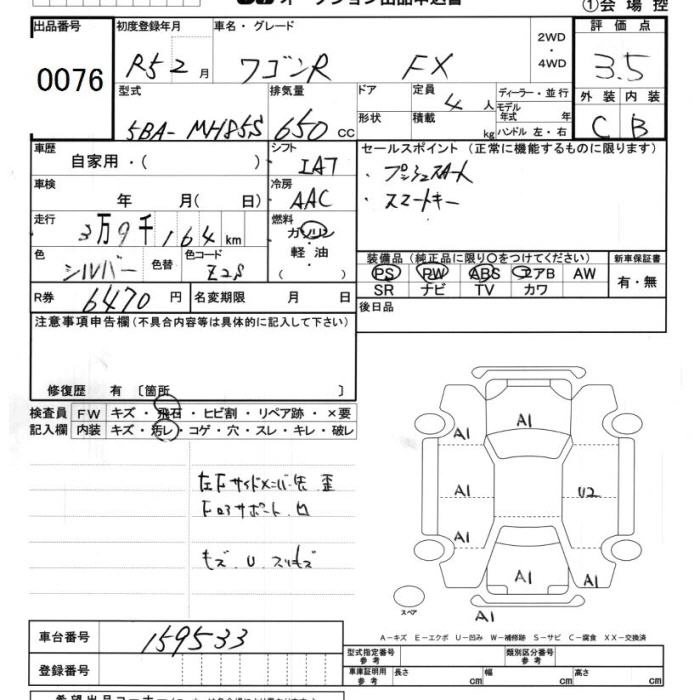 オークション出品申込書
①会場控
出品番号 初度登録年月 車名・グレード 2WD・4WD 評価点
0076 R5 2月 ワゴンR FX 3.5
型式 排気量 ドア 定員 4人 ディーラー・並行 外装 内装
5BA-MH85S 650cc 形状 積載 kg モデル年式 年 C B
ハンドル 左・右
車歴 自家用・( ) シフト IAT セールスポイント (正常に機能するものに限ります)
・プッシュスタート
車検 年 月( 日) 冷房 AAC ・スマートキー
走行 3万9千164km 燃料 ガソリン
軽油
( )
色 シルバー 色替 色コード Z2S
装備品 (純正品に限り○をつけてください) 新車保証書
PS PW ABS エアB AW 有・無
SR ナビ TV カワ
R券 6470円 名変期限 月 日 後日品
注意事項申告欄(不具合内容等は具体的に記入して下さい)
修復歴 有〔箇所 〕
検査員 FW キズ・飛石・ヒビ割・リペア跡・×要
記入欄 内装 キズ・汚レ・コゲ・穴・スレ・キレ・破レ
左右サイドメンバー先 歪
キズ.U.スリキズ
A1
A1
A1 U2
A1
A1 A1
スペア A1
A-キズ E-エクボ U-凹み W-補修跡 S-サビ C-腐食 XX-交換済
車台番号 159533
型式指定番号 参考 類別区分番号 参考
登録番号 車庫証明用 参考 長さ cm 幅 cm 高さ cm
希望出品コーナー